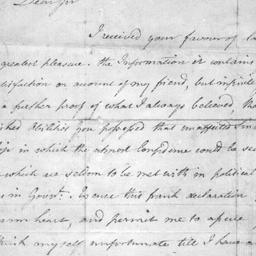 Dear Sir
I received your favour of
greatest pleasure. the Information it contains
satisfaction on account of my friend, but infinite
a further proof of what I always believed, tha
Abilities you possessed that unaffected
in which the utmost Confidence could be
which are seldom to be met with in political
in Govert. Excuse this frank declaration
warm heart, and permit me to
think my self unfortunate till I have